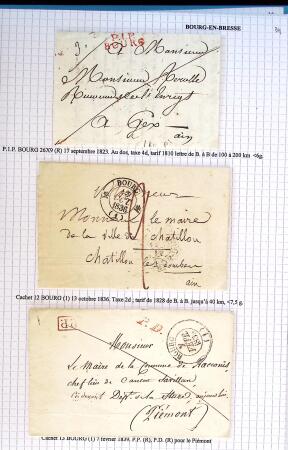 BOURG-EN-BRESSE
P.1.P.
BOURG
A Monsieur
Monsieur
A Gex
ain
P.1.P. BOURG 26X9 (R) 17 septembre 1823. Au dos, taxe 4d, tarif 1810 lettre de B. à B de 100 à 200 km <6g.
BOURG
1836
(1)
Monsieur le maire
de la ville de châtillon
Châtillon les dombes
ain
Cachet 12 BOURG (1) 13 octobre 1836. Taxe 2d ; tarif de 1828 de B. à B. jusqu'à 40 km, <7,5 g.
PP
P.D.
Monsieur
Le Maire de la Commune de Racconis
chef lieu de Canton
(Piémont)
Cachet 13 BOURG (1) 7 février 1839, P.P. (R), P.D. (R) pour le Piémont